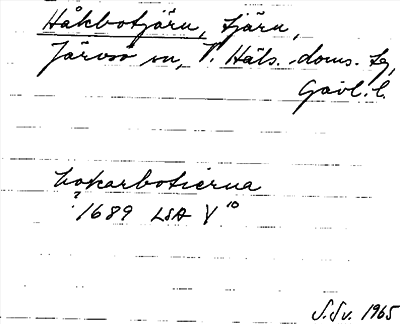 Håkbotjärn, tjärn,
Järvsö sn, V. Häls. doms. tg,
Gävl. l.
hokarbotierna
? 1689 LSA V 10
S.Sv. 1965